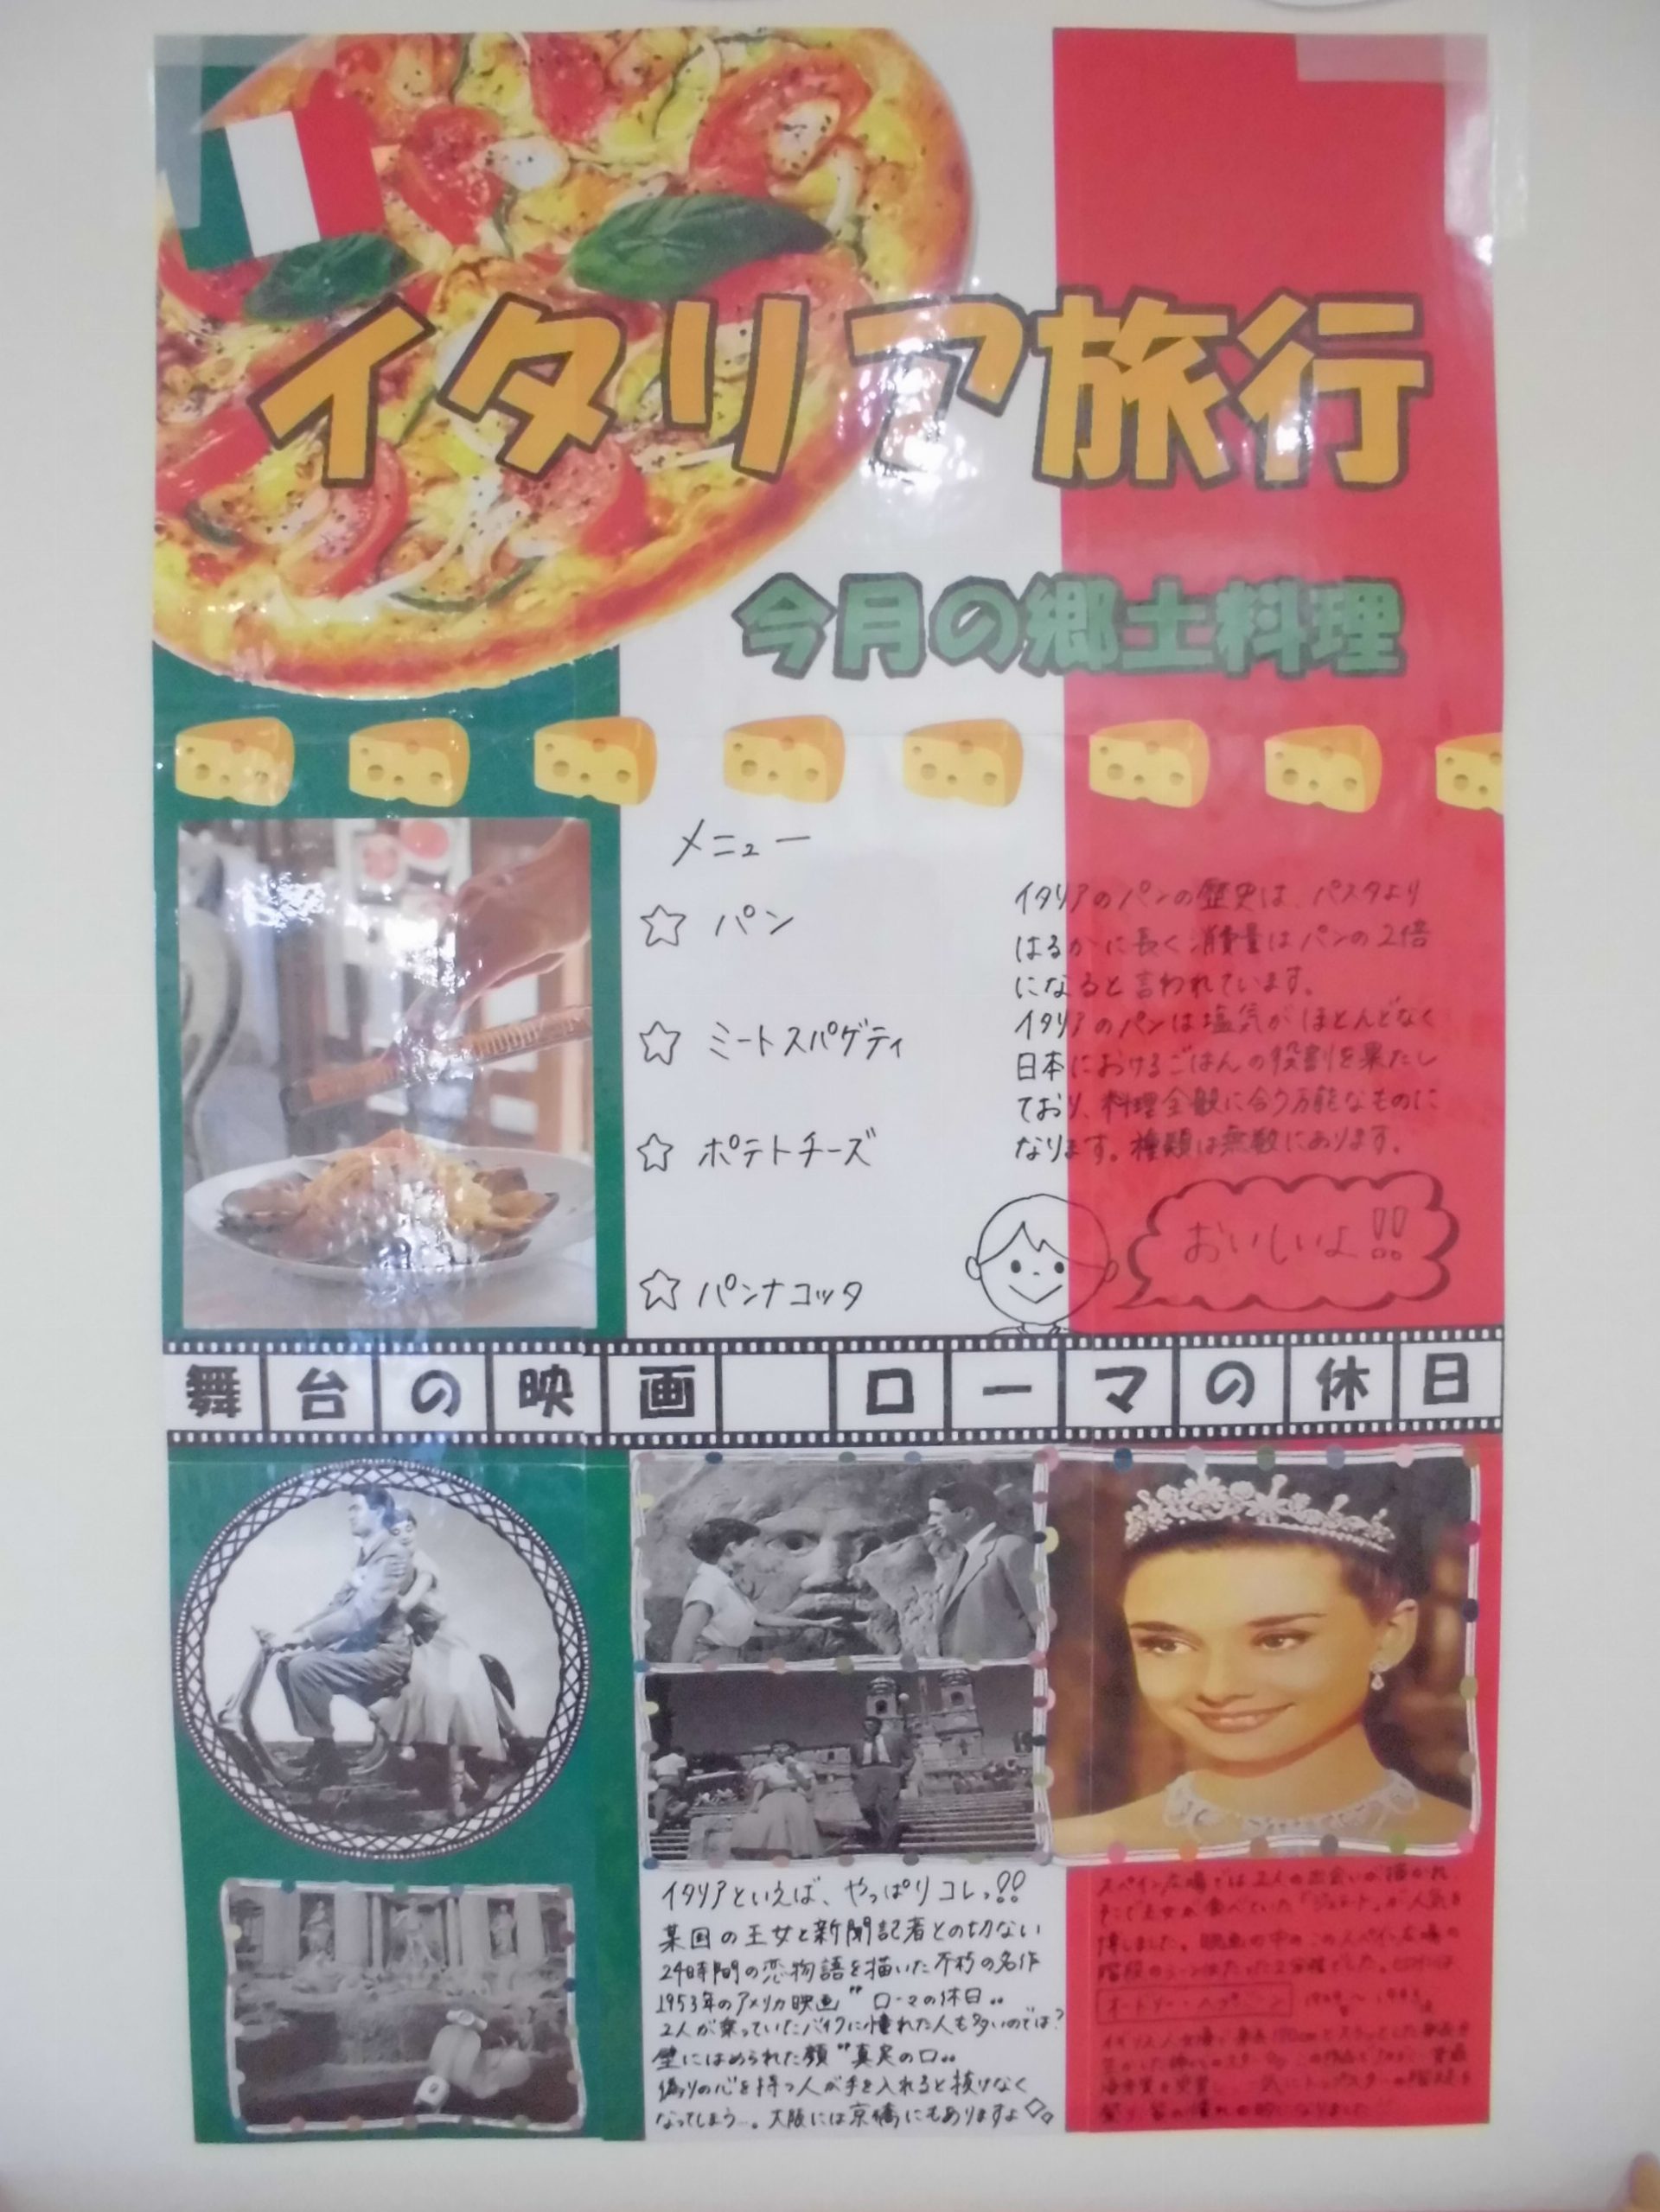 イタリア旅行
今月の郷土料理
メニュー
☆ パン
☆ ミートスパゲティ
☆ ポテトチーズ
☆ パンナコッタ
イタリアのパンの歴史は、パスタより
はるかに長く消費量はパンの2倍
になると言われています。
イタリアのパンは塩気がほとんどなく
日本におけるごはんの役割を果たし
ており、料理全般に合う万能なものに
なります。種類は無数にあります。
おいしいよ!!
舞台の映画 ローマの休日
イタリアといえば、やっぱりコレっ!!
某国の王女と新聞記者との切ない
24時間の恋物語を描いた不朽の名作
1953年のアメリカ映画"ローマの休日"
2人が乗っていたバイクに憧れた人も多いのでは?
壁にはめられた顔"真実の口"
偽りの心を持つ人が手を入れると抜けなく
なってしまう…。大阪には京橋にもありますよ
スペイン広場では2人の出会いが描かれ
そこで王女が食べていた「ジェラート」が人気を
博しました。映画の中のこのスペイン広場の
階段のシーンはたった2分程でした。
オードリー・ヘプバーン